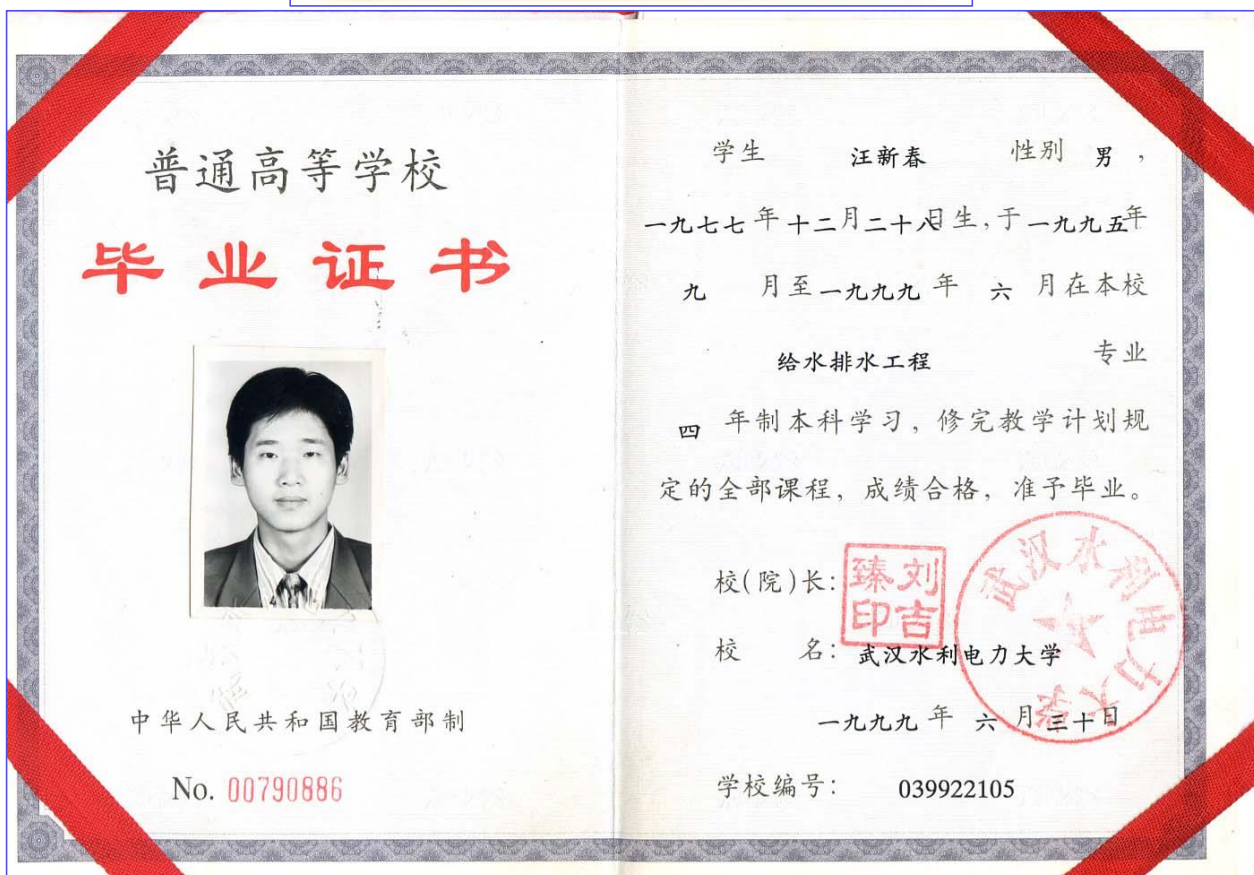 普通高等学校
毕业证书
中华人民共和国教育部制
No. 00790886
学生 汪新春 性别 男,
一九七七年十二月二十八日生,于一九九五年
九 月至一九九九年 六 月在本校
给水排水工程 专业
四 年制本科学习,修完教学计划规
定的全部课程,成绩合格,准予毕业。
校(院)长: 刘吉臻印
校 名: 武汉水利电力大学
武汉水利电力大学
一九九九 年 六 月三十日
学校编号: 039922105